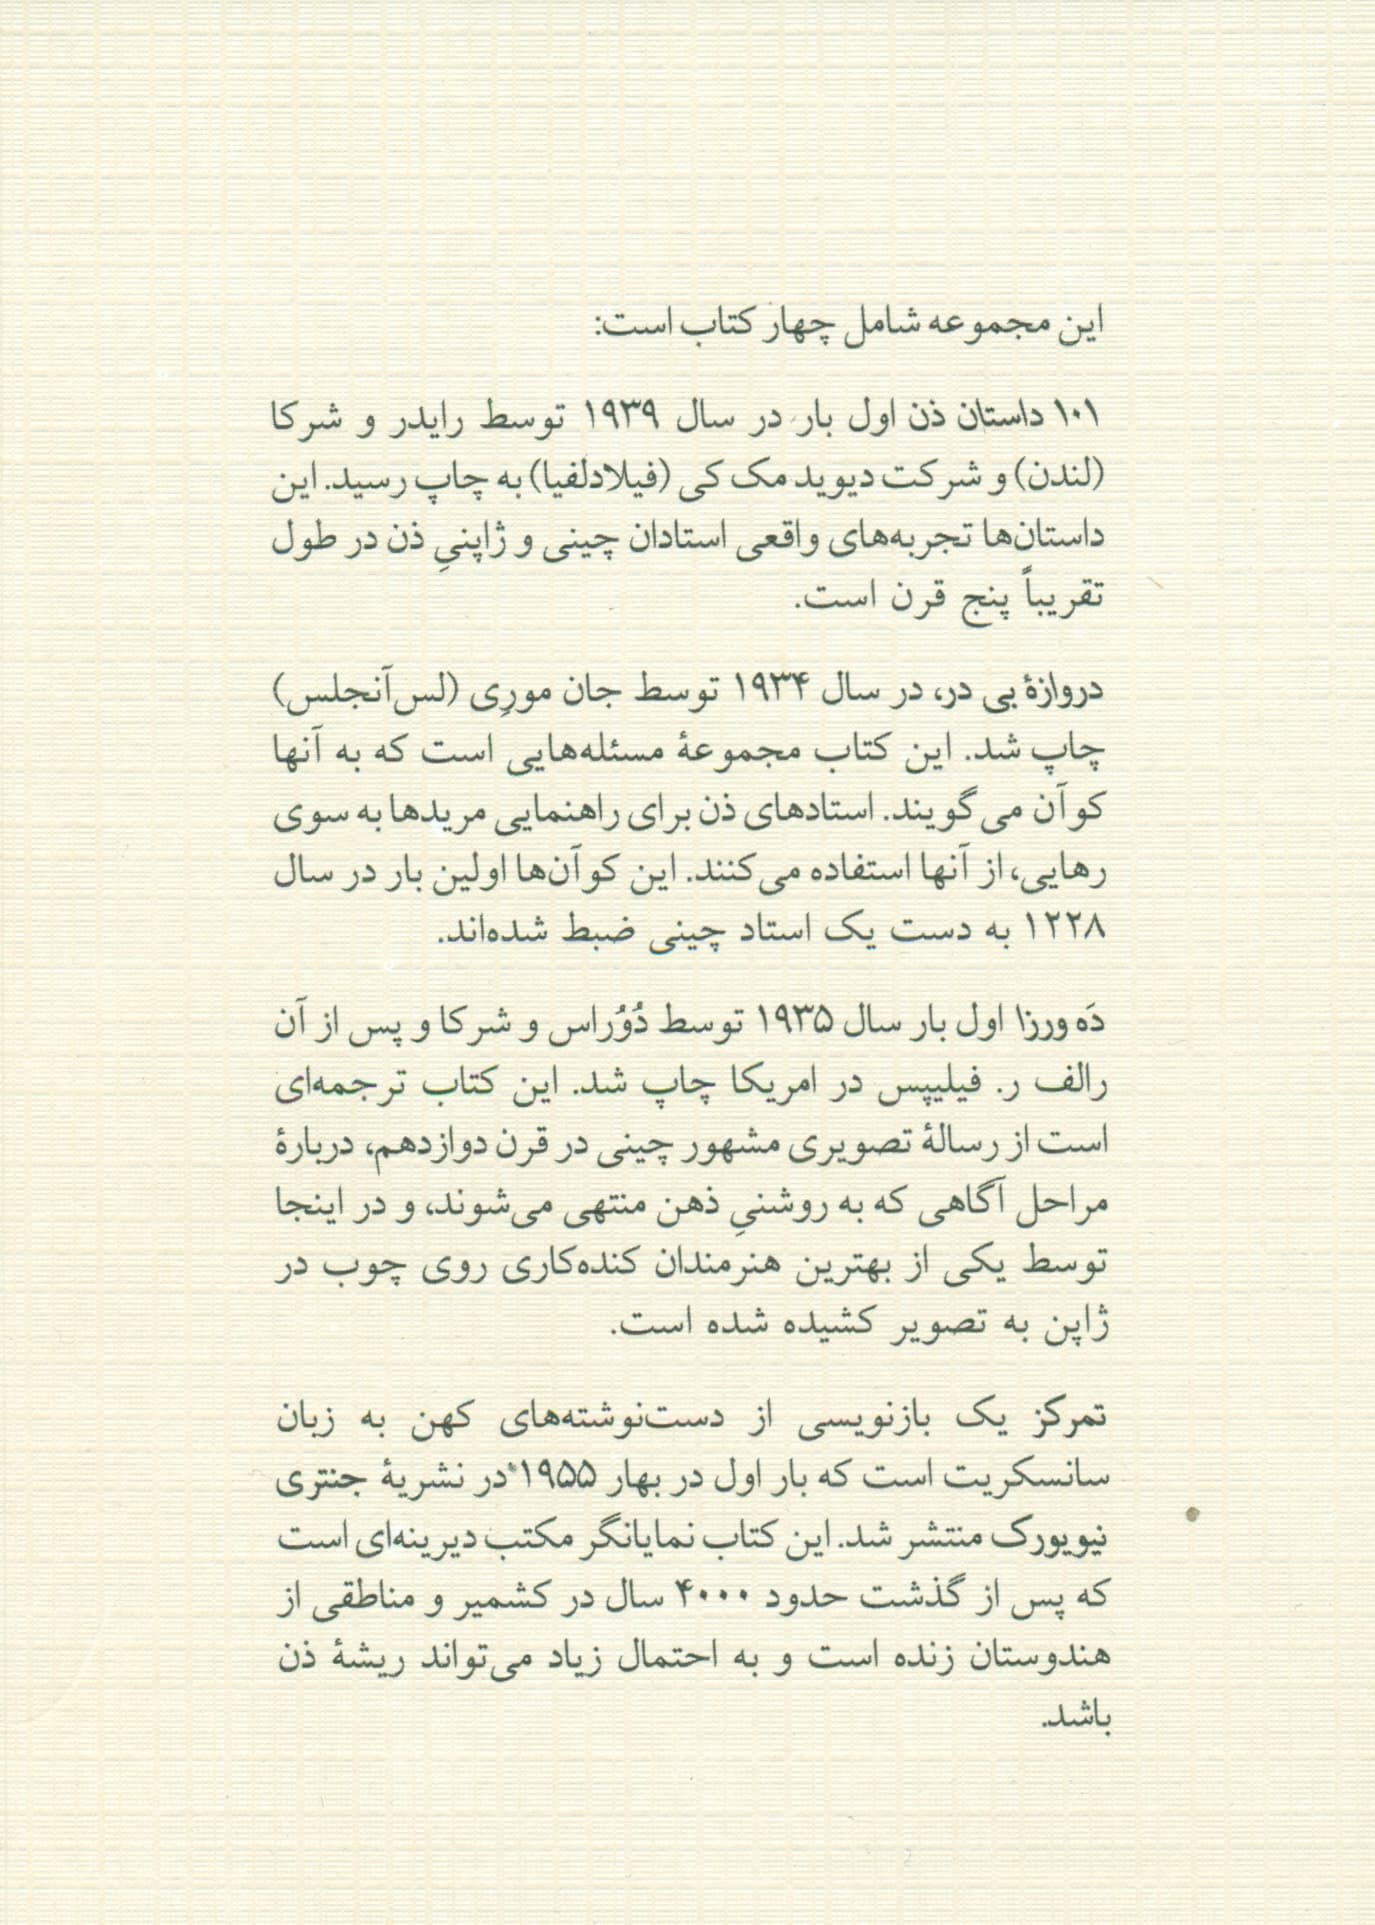 این مجموعه شامل چهار کتاب است:
۱۰۱ داستان ذن اول بار در سال ۱۹۳۹ توسط رایدر و شرکا
(لندن) و شرکت دیوید مک کی (فیلادلفیا) به چاپ رسید. این
داستان‌ها تجربه‌های واقعی استادان چینی و ژاپنیِ ذن در طول
تقریباً پنج قرن است.
دروازهٔ بی در، در سال ۱۹۳۴ توسط جان مورِی (لس‌آنجلس)
چاپ شد. این کتاب مجموعهٔ مسئله‌هایی است که به آنها
کوآن می‌گویند. استادهای ذن برای راهنمایی مریدها به سوی
رهایی، از آنها استفاده می‌کنند. این کوآن‌ها اولین بار در سال
۱۲۲۸ به دست یک استاد چینی ضبط شده‌اند.
دَه ورزا اول بار سال ۱۹۳۵ توسط دُوُراس و شرکا و پس از آن
رالف ر. فیلیپس در امریکا چاپ شد. این کتاب ترجمه‌ای
است از رسالهٔ تصویری مشهور چینی در قرن دوازدهم، دربارهٔ
مراحل آگاهی که به روشنیِ ذهن منتهی می‌شوند، و در اینجا
توسط یکی از بهترین هنرمندان کنده‌کاری روی چوب در
ژاپن به تصویر کشیده شده است.
تمرکز یک بازنویسی از دست‌نوشته‌های کهن به زبان
سانسکریت است که بار اول در بهار ۱۹۵۵ در نشریهٔ جنتری
نیویورک منتشر شد. این کتاب نمایانگر مکتب دیرینه‌ای است
که پس از گذشت حدود ۴۰۰۰ سال در کشمیر و مناطقی از
هندوستان زنده است و به احتمال زیاد می‌تواند ریشهٔ ذن
باشد.